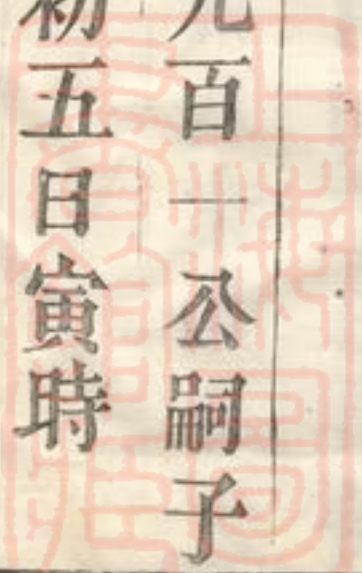 百一公嗣子
初五日寅時